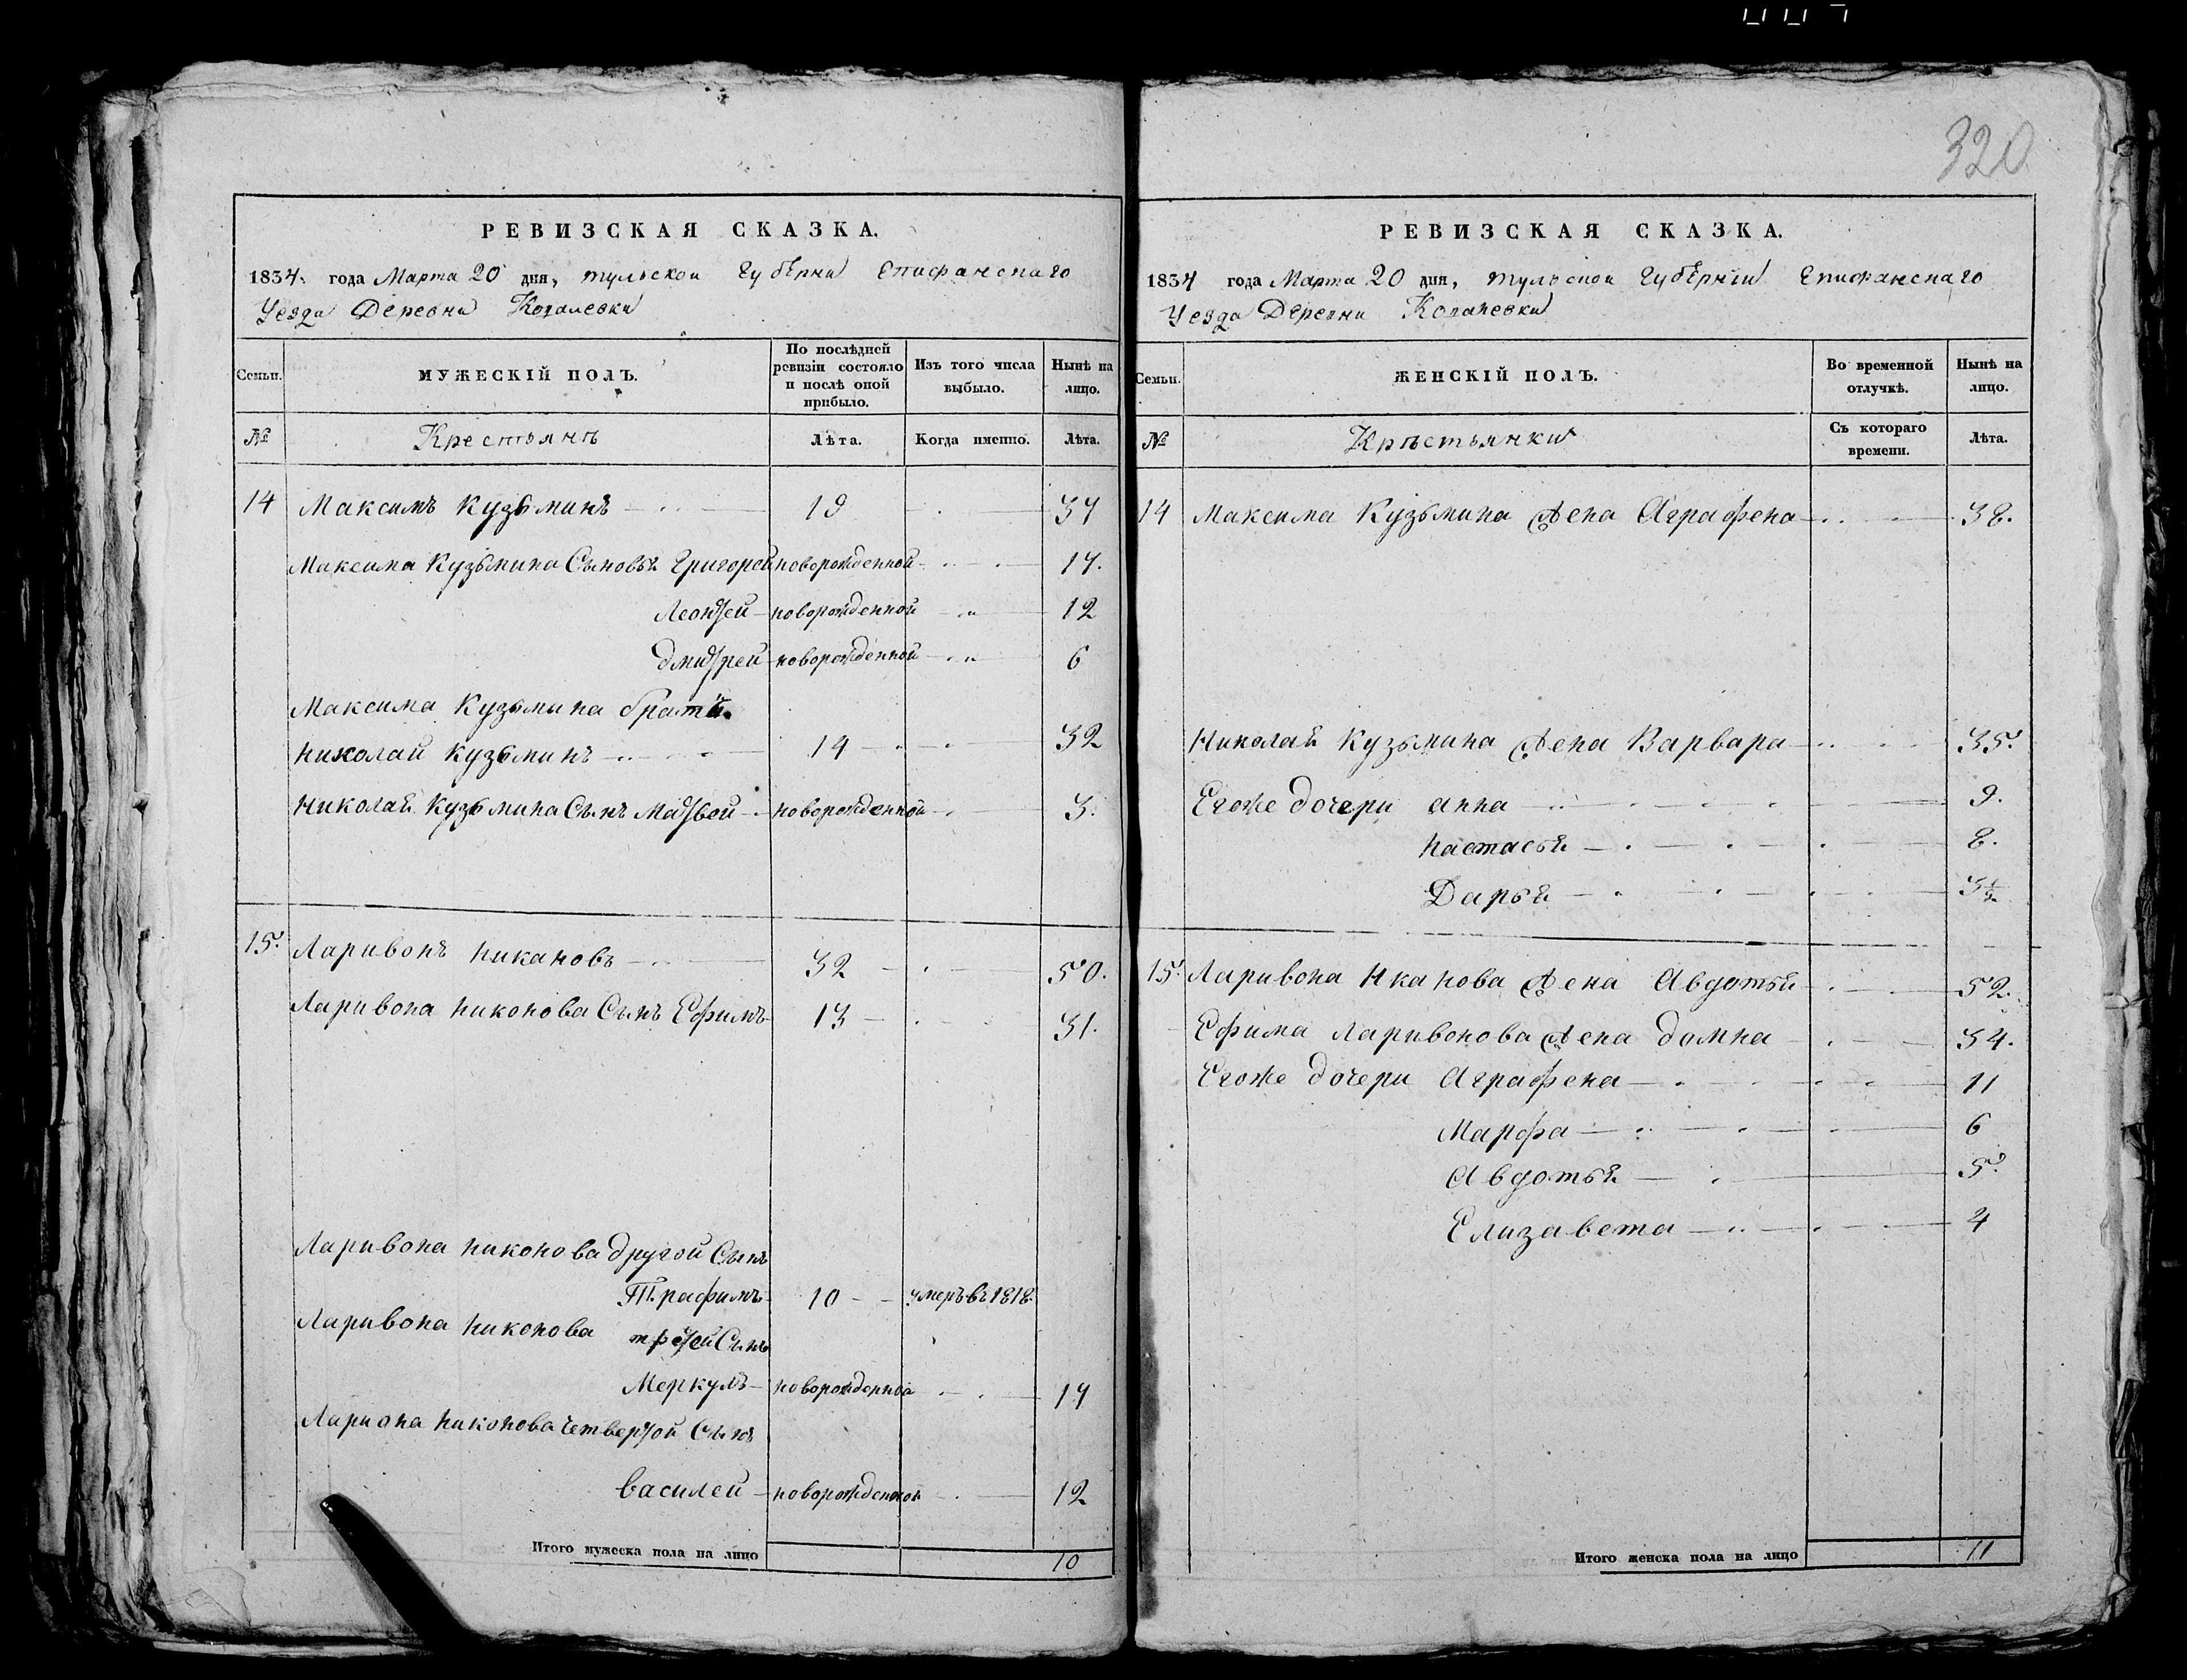 320
РЕВИЗСКАЯ СКАЗКА.
1834. года Марта 20 дня, тульской губѣрни Епифанскаго
Уезда Деревни
Семьи.
МУЖЕСКІЙ ПОЛЪ.
По послѣдней ревизіи состояло и послѣ оной прибыло.
Изъ того числа выбыло.
Нынѣ на лицо.
№
Крестьянъ
Лѣта.
Когда именно.
Лѣта.
14 Максимъ Кузьминъ 19 37
Максима Кузьмина Сыновья Григорей новорожденной 17.
Леонтей новорожденной 12
дмитрей новорожденной 6
Максима Кузьмина братъ
николай кузьминъ 14 32
Николая Кузьмина Сынъ Матвей новорожденной 3.
15. Ларивонъ никановъ 32 50.
Ларивона никонова Сынъ Ефимъ 13 31.
Ларивона никонова другой Сынъ
Трафимъ 10 умеръ въ 1818.
Ларивона никонова третей Сынъ
Меркулъ новорожденной 14
Лариона никонова четвертой Сынъ
василей новорожденной 12
Итого мужеска пола на лицо 10
РЕВИЗСКАЯ СКАЗКА.
1834 года Марта 20 дня, тульской губѣрніи Епифанскаго
Уезда Деревни
Семьи.
ЖЕНСКІЙ ПОЛЪ.
Во временной отлучкѣ.
Нынѣ на лицо.
№
Крѣстьянки
Съ котораго времени.
Лѣта.
14 Максима Кузьмина Жена Аграфена 38.
Николая Кузьмина Жена Варвара 35.
Егоже дочери анна 9.
настасья 8.
Дарья 3½
15. Ларивона Нканова Жена Авдотья 52.
Ефима Ларивонова Жена домна 34.
Егоже дочери Аграфена 11
Марфа 6
Авдотья 5.
Елизавета 4
Итого женска пола на лицо 11